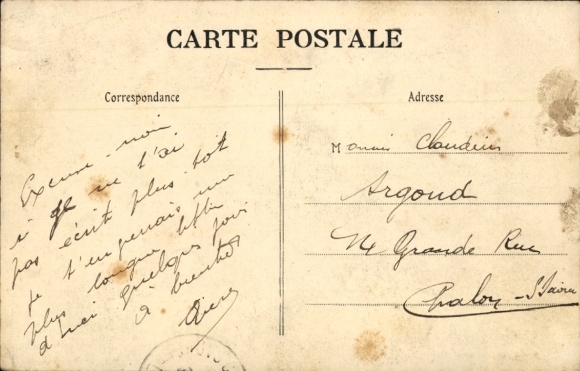 CARTE POSTALE
Correspondance
Adresse
Excuse-moi
si je ne t'ai
pas écrit plus tôt
je t'enverrais une
plus longue lettre
d'ici quelques jours
à bientôt
Pierre
Monsieur Claudius
Argoud
14 Grande Rue
Chalon-s/Saône